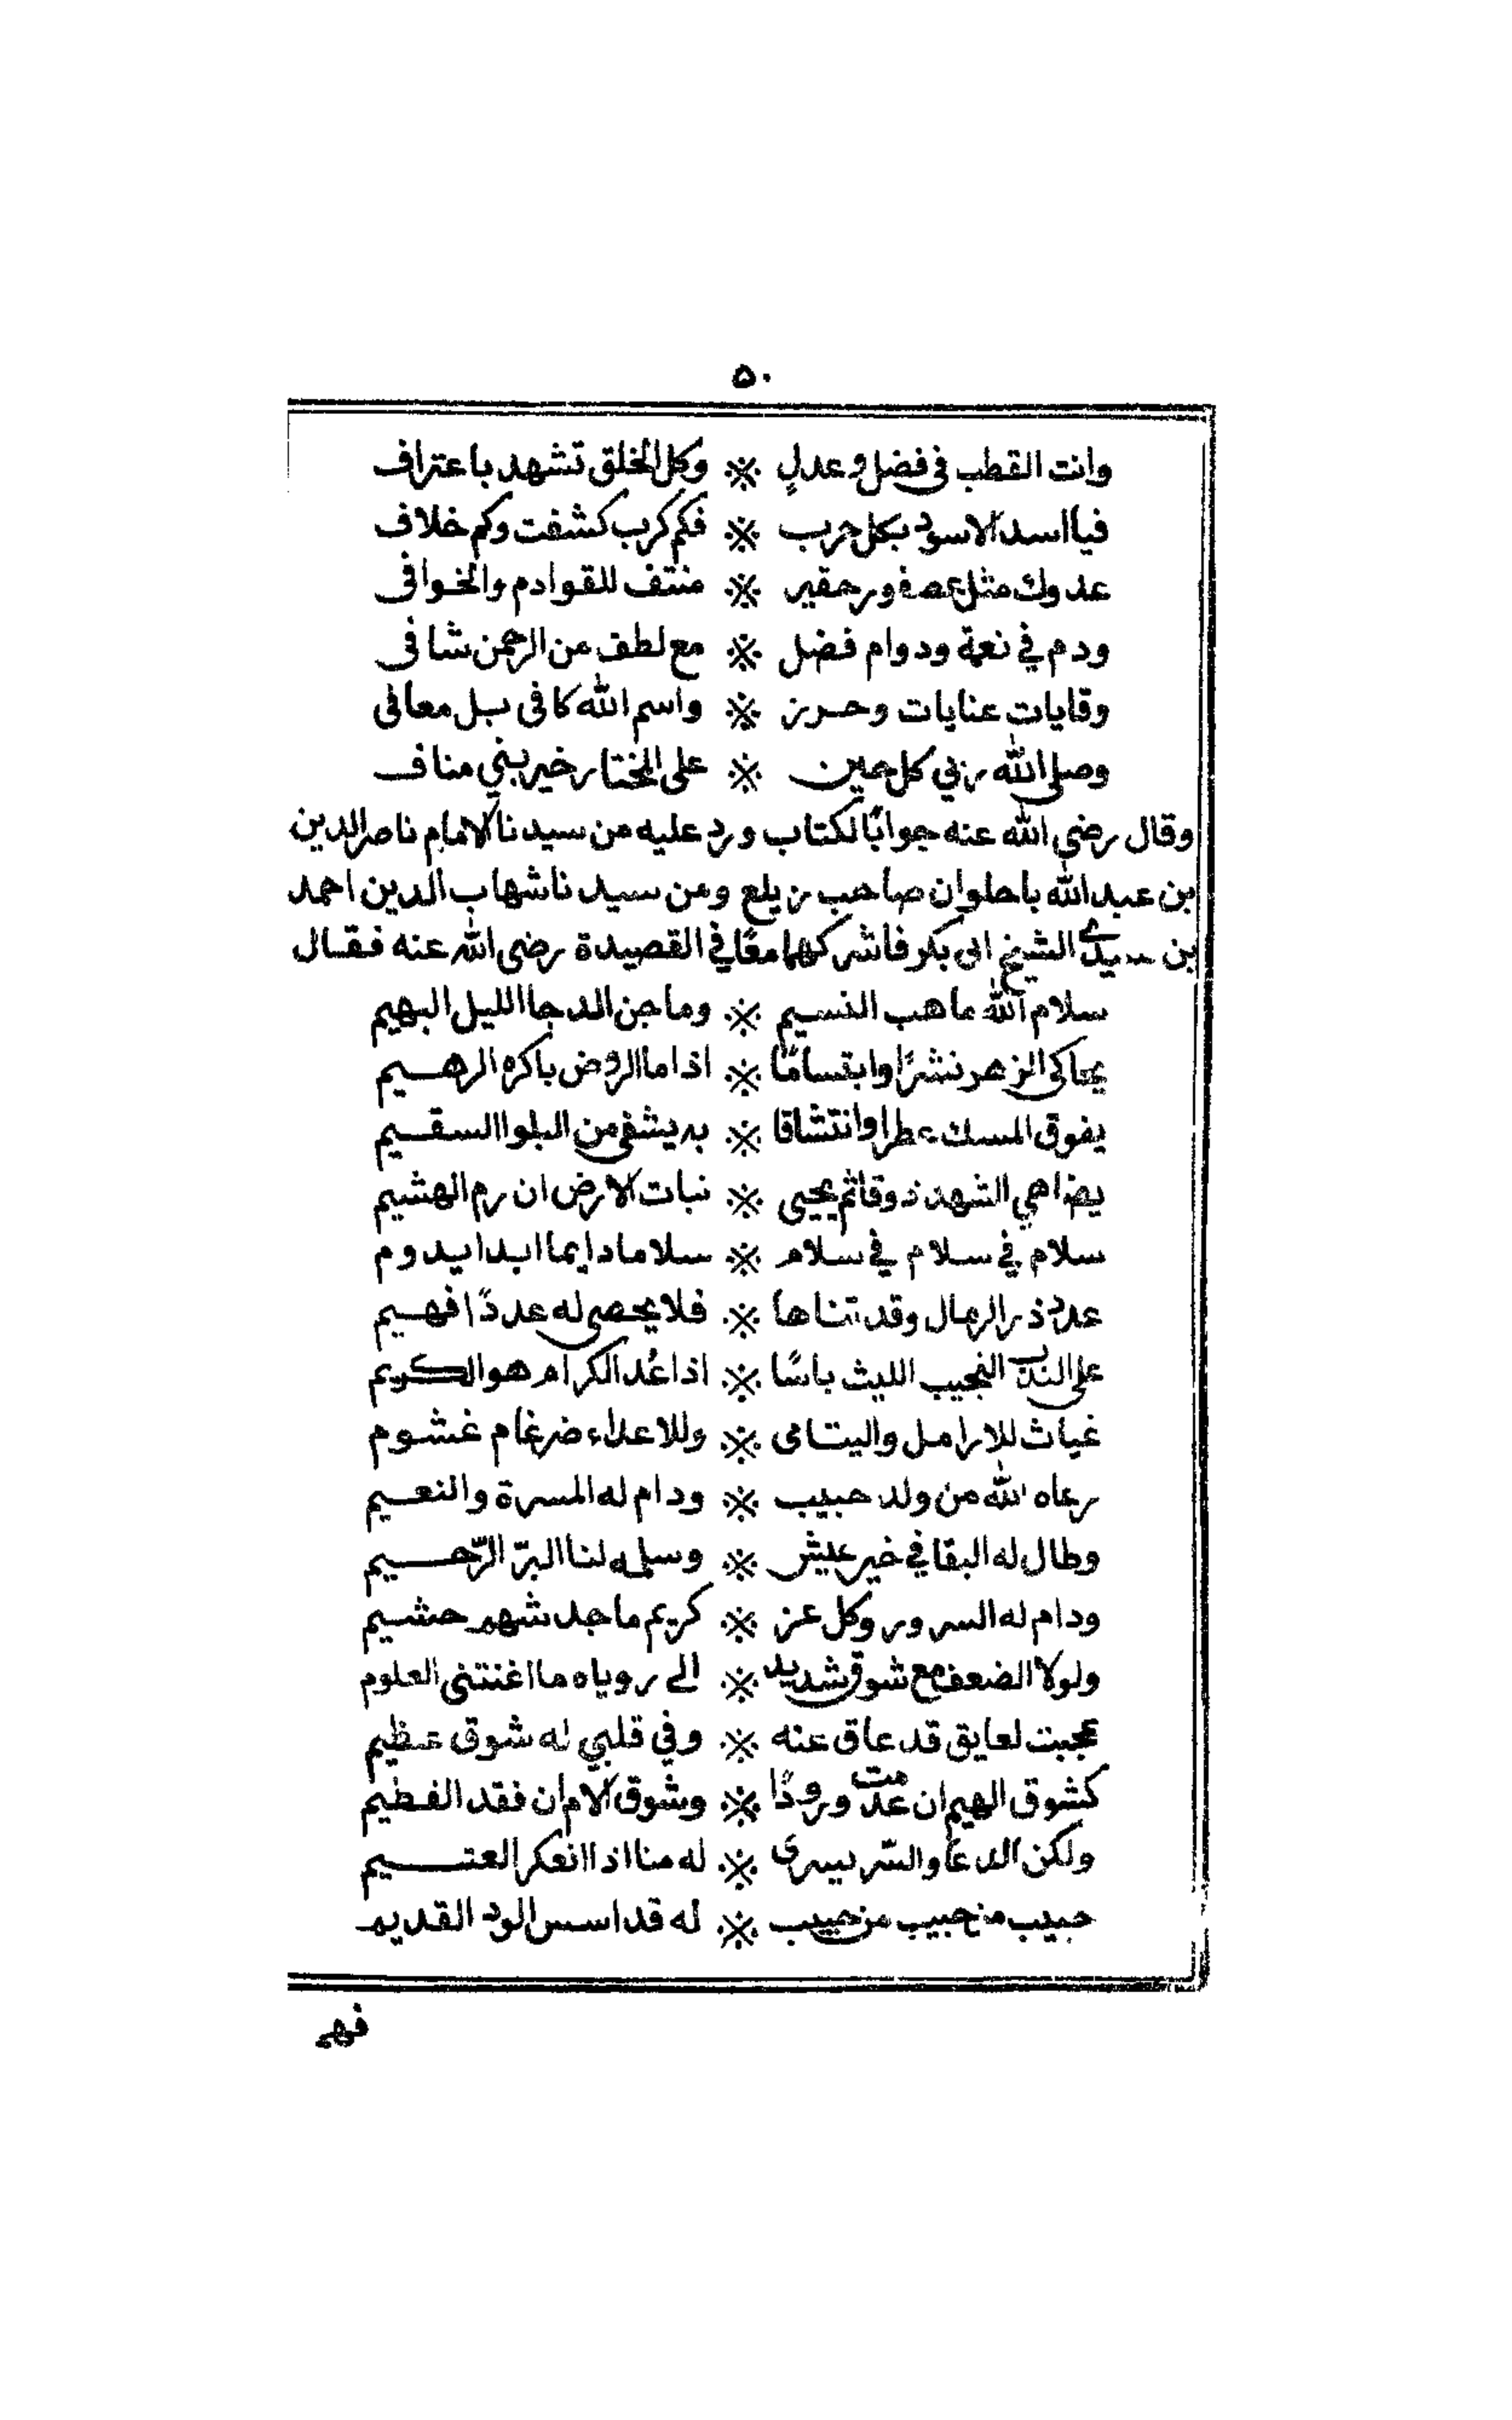 ٥٠
وانت القطب فى فضل وعدلٍ ※ وكل الخلق تشهد باعتراف
فيااسد الاسود بكل حرب ※ فكم كرب كشفت وكم خلاف
عدوك مثل عصفور حقير ※ منتف للقوادم والخوافى
ودم في نعمة ودوام فضل ※ مع لطف من الرحمن شافى
وقايات عنايات وحرز ※ واسم الله كافى بل معافى
وصلى الله ربي كل حين ※ على المختار خير بني مناف
وقال رضى الله عنه جوابًا لكتاب ورد عليه من سيدنا الامام ناصر الدين
بن عبدالله باحلوان صاحب زيلع ومن سيدنا شهاب الدين احمد
بن سيدي الشيخ ابى بكر فاشركهما معًا في القصيدة رضى الله عنه فقال
سلام الله ماهب النسيم ※ وماجن الدجا الليل البهيم
يحاكى الزهر نشرًا وابتسامًا ※ اذاما الروض باكره الرهيم
يفوق المسك عطرا وانتشاقا ※ به يشفى من البلوا السقيم
يضاهي الشهد ذوقا ثم يحيى ※ نبات الارض ان رم الهشيم
سلام في سلام في سلام ※ سلاما دايما ابدا يدوم
عدد ذر الرمال وقد تناها ※ فلا يحصى له عددًا فهيم
على الندب النجيب الليث باسًا ※ اذا عُد الكرام هو الكريم
غياث للارامل واليتامى ※ وللاعداء ضرغام غشوم
رعاه الله من ولد حبيب ※ ودام له المسرة والنعيم
وطال له البقا في خير عيش ※ وسلمه لنا البرّ الرّحيم
ودام له السرور وكل عز ※ كريم ماجد شهم حشيم
ولولا الضعف مع شوق شديد ※ الى روياه ما اغنتنى العلوم
عجبت لعايق قد عاق عنه ※ وفي قلبي له شوق عظيم
كشوق الهيم ان عدمت ورودًا ※ وشوق الام ان فقد الفطيم
ولكن الدعا والسّر يسرى ※ له منا اذا انعكر العتيم
حبيب من حبيب من حبيب ※ له قد اسس الود القديم
فهم